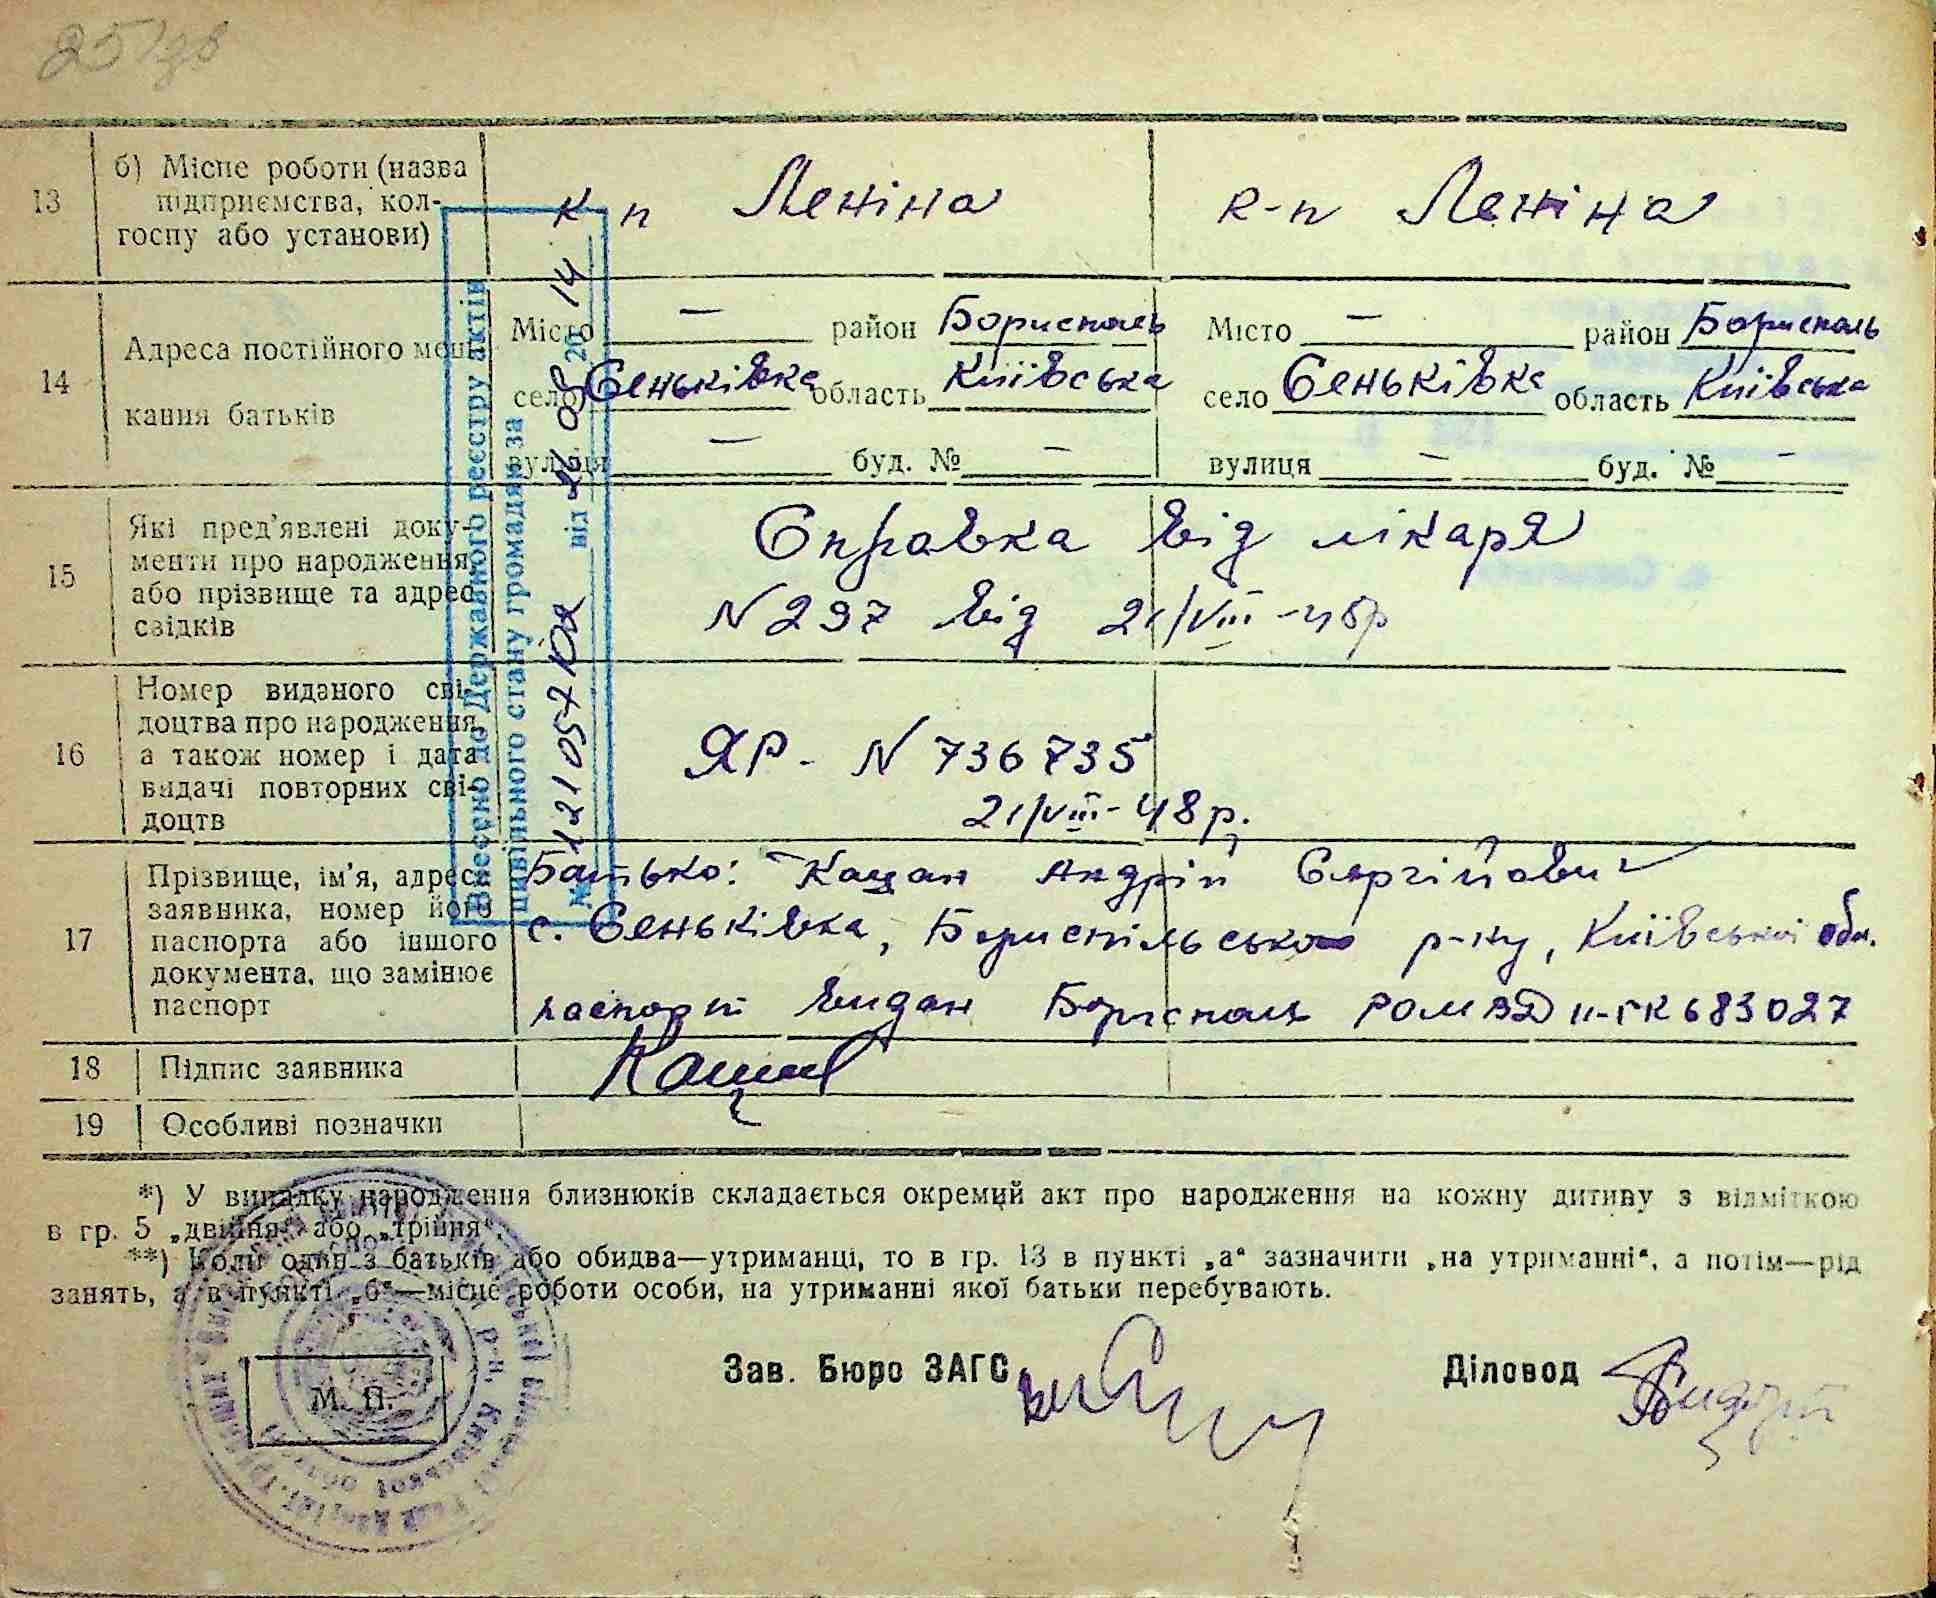 25 зв
13 б) Місце роботи (назва підприємства, колгоспу або установи)
к-п Леніна
к-п Леніна
14 Адреса постійного мешкання батьків
Місто — район Бориспаль
село Сеньківка область Київська
вулиця — буд. № —
Місто — район Бориспаль
село Сеньківка область Київська
вулиця — буд. № —
15 Які пред'явлені документи про народження, або прізвище та адрес свідків
Справка від лікаря
N 297 від 21/VIII-48р
16 Номер виданого свідоцтва про народження, а також номер і дата видачі повторних свідоцтв
ЯР - N 736735
21/VIII-48р.
17 Прізвище, ім'я, адреса заявника, номер його паспорта або іншого документа, що замінює паспорт
Батько: Кацан Андрій Сергійович
с. Сеньківка, Бориспільсько р-ну, Київської обл.
паспорт видан Бориспаль РОМВД II-ГК 683027
18 Підпис заявника
Кацан
19 Особливі позначки
Внесено до Державного реєстру актів
цивільного стану громадян за
№ 121057102 від 26 08 20 14
*) У випадку народження близнюків складається окремий акт про народження на кожну дитину з відміткою
в гр. 5 „двійня“ або „трійня“.
**) Коли один з батьків або обидва—утриманці, то в гр. 13 в пункті „а“ зазначити „на утриманні“, а потім—рід
занять, а в пункті „б“—місце роботи особи, на утриманні якої батьки перебувають.
Зав. Бюро ЗАГС
Діловод
М. П.